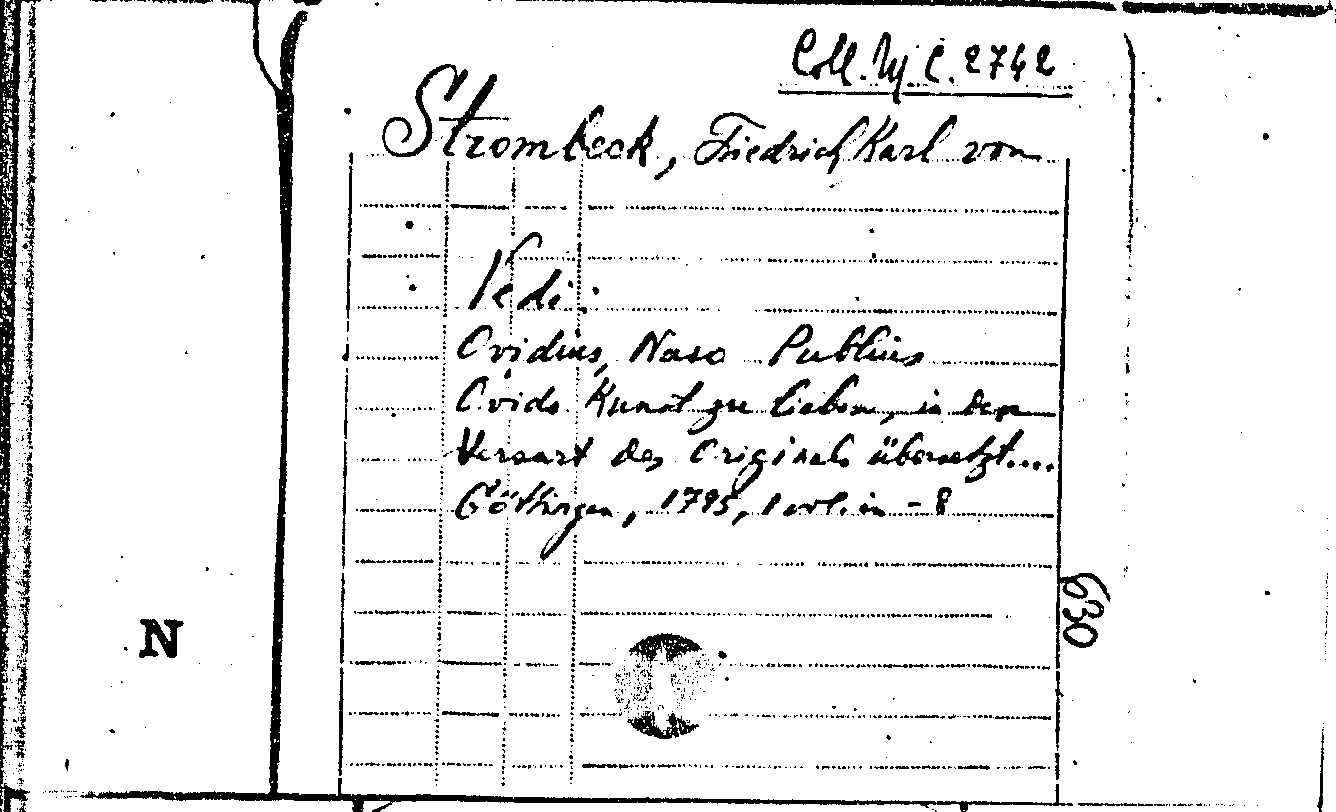 Coll. Uj C. 2742
Strombeck, Friedrich Karl von
Vedi:
Ovidius, Naso Publius
Ovids Kunst zu lieben, in der
Versart des Originals übersetzt....
Göttingen, 1795, 1 vol. in - 8
630
N